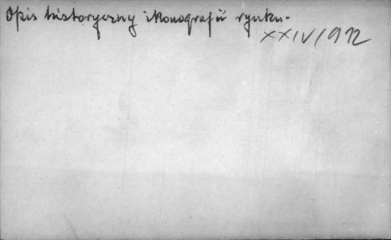 Opis historyczny Monografii rynku.
XXIV/912